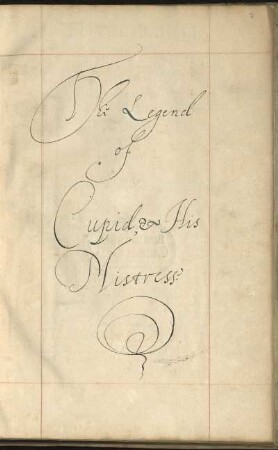 The Legend
of
Cupid, & His
Mistress.